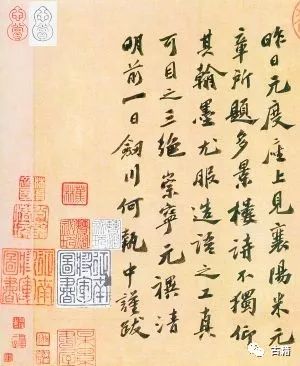 昨日元度座上見襄陽米元
章所題多景樓詩不獨仰
其翰墨尤服造語之工真
可目之三絕崇寧元禩清
明前一日劒川何執中謹跋
古籍